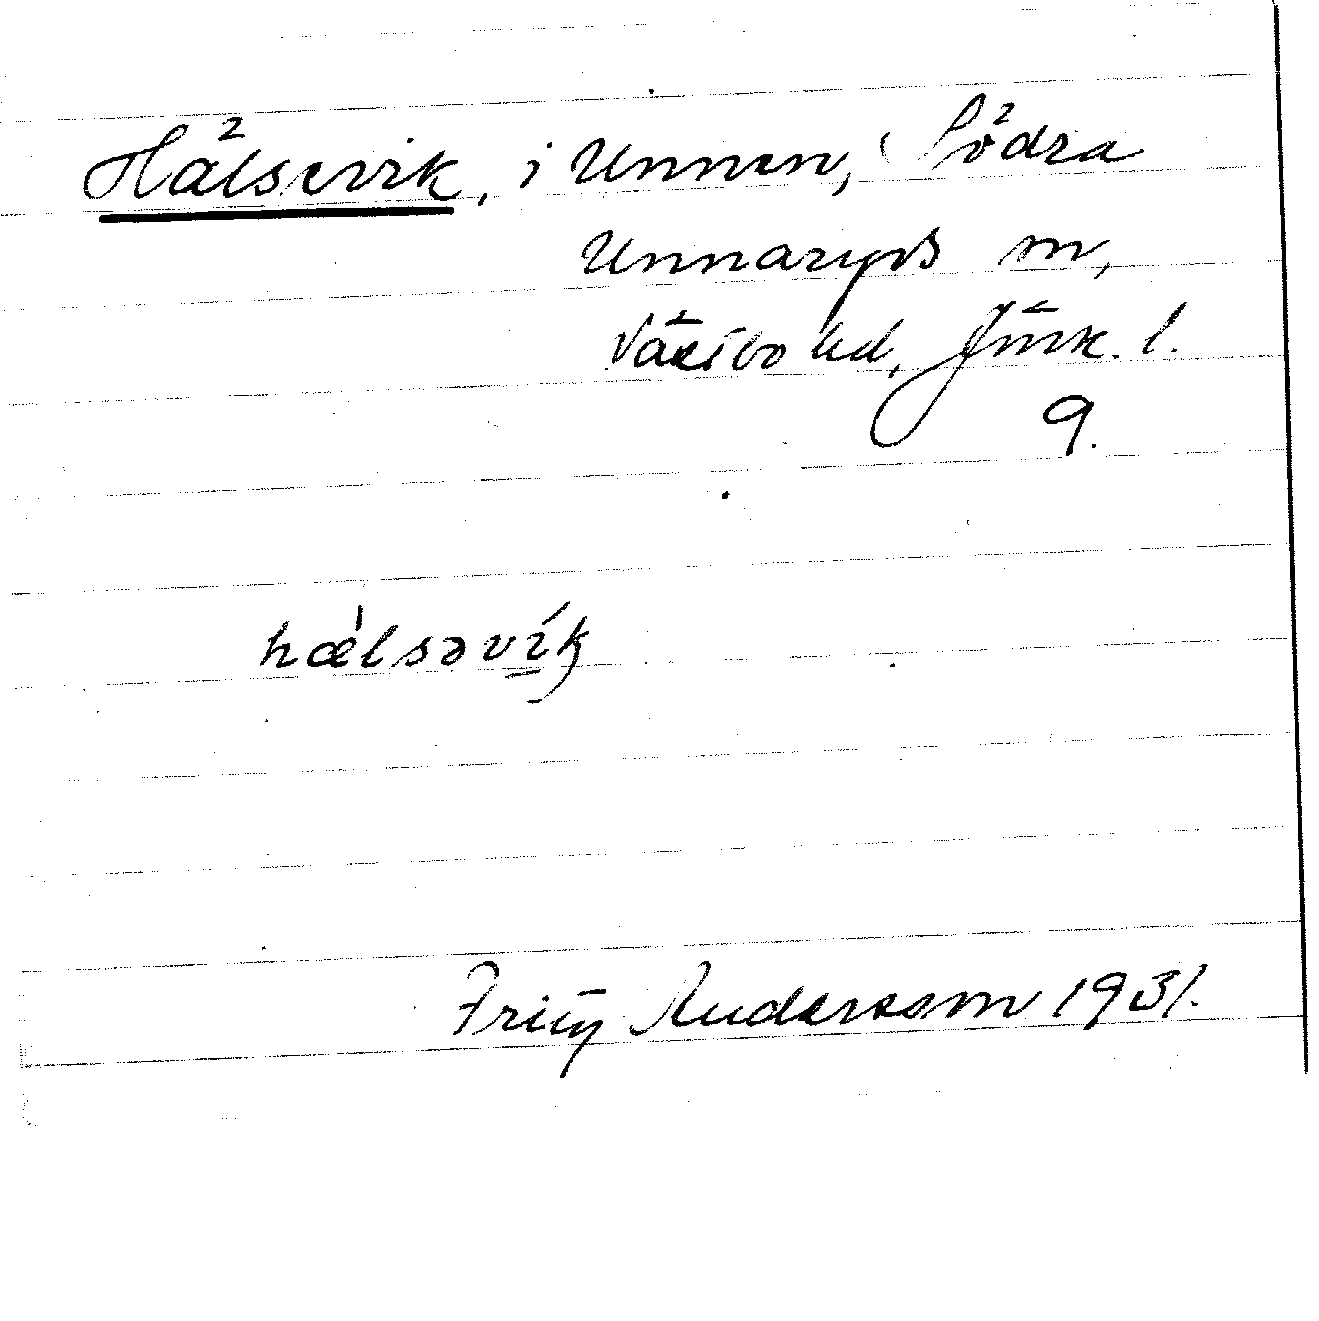 Hälsevik, i Unnen, Södra
Unnaryds sn,
Västbo hd, Jönk. l.
9.
hælsəvik
Fritz Andersson 1931.